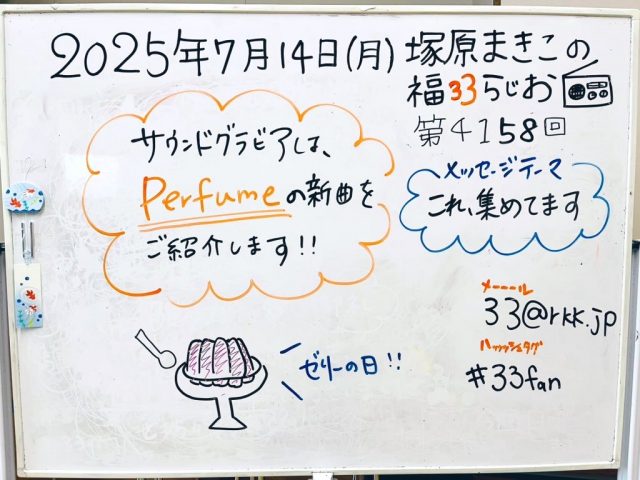 2025年7月14日(月) 塚原まきこの
福33らじお
第4158回
サウンドグラビアは、
Perfumeの新曲を
ご紹介します!!
メッセージテーマ
これ、集めてます
メーール
33@rkk.jp
ハッッシュタグ
#33fan
ゼリーの日!!